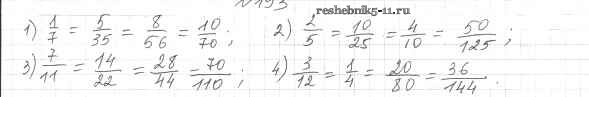 №193
reshebnik5-11.ru
1) 1/7 = 5/35 = 8/56 = 10/70; 2) 2/5 = 10/25 = 4/10 = 50/125;
3) 7/11 = 14/22 = 28/44 = 70/110; 4) 3/12 = 1/4 = 20/80 = 36/144.